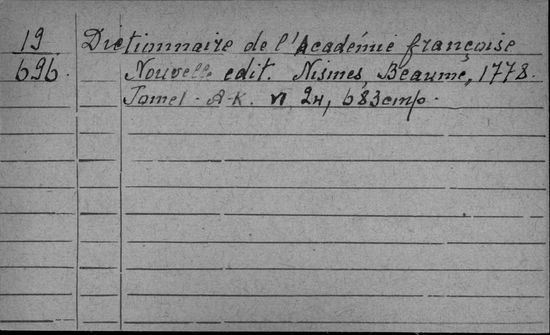 19 Dictionnaire de l'Académie françoise
696. Nouvelle edit. Nismes, Beaume, 1778.
Tome I - A-K. VI, 24, 683 стр.